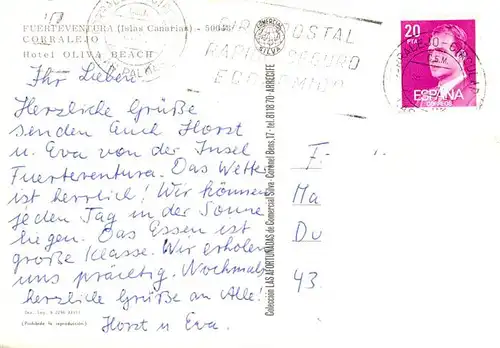 FUERTEVENTURA (Islas Canarias) - 50045
CORRALEJO
Hotel OLIVA BEACH
Ihr Lieben!
Herzliche Grüße
senden Euch Horst
u. Eva von der Insel
Fuerteventura. Das Wetter
ist herrlich! Wir können
jeden Tag in der Sonne
liegen. Das Essen ist
große Klasse. Wir erholen
uns prächtig. Nochmals
herzliche Grüße an Alle!
Horst u Eva.
(Prohibida la reproducción)
Colección LAS AFORTUNADAS de Comercial Silva - Coronel Bens, 17 - tel. 81 18 70 - ARRECIFE
GIRO POSTAL
RAPIDO SEGURO
ECONOMICO
20
PTA
ESPAÑA
CORREOS
F
Ma
Du
43.